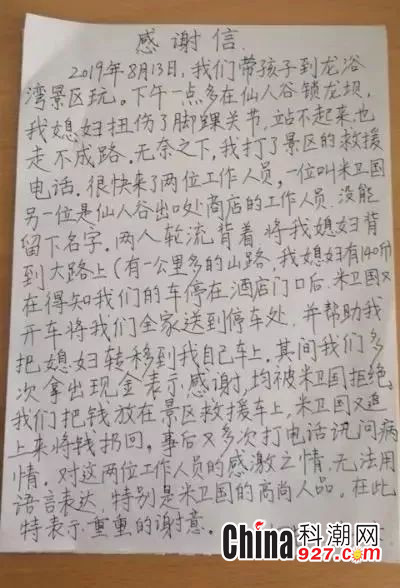 感谢信
2019年8月13日,我们带孩子到龙浴
湾景区玩。下午一点多在仙人谷锁龙坝,
我媳妇扭伤了脚踝关节,站不起来也
走不成路。无奈之下,我打了景区的救援
电话。很快来了两位工作人员,一位叫米卫国
另一位是仙人谷出口处商店的工作人员,没能
留下名字。两人轮流背着,将我媳妇背
到大路上(有一公里多的山路,我媳妇有140斤
在得知我们的车停在酒店门口后,米卫国又
开车将我们全家送到停车处,并帮助我
把媳妇转移到我自己车上。其间我们多
次拿出现金表示感谢,均被米卫国拒绝,
我们把钱放在景区救援车上,米卫国又追
上来将钱扔回。事后又多次打电话讯问病
情。对这两位工作人员的感激之情,无法用
语言表达,特别是米卫国的高尚人品,在此
特表示重重的谢意.
China科潮网
927.com